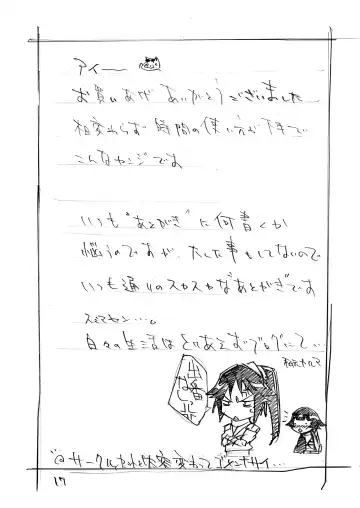 アイー
お買いあげ ありがとうございました
相変わらず 時間の使い方が下手で
こんなカンジです
いつも"あとがき"に何書くか
悩うのですが、大した事もしてないので
いつも通りのスカスカなあとがきです
スマヤン…。
日々の生活はとりあえずブログにて…
出番なし
17